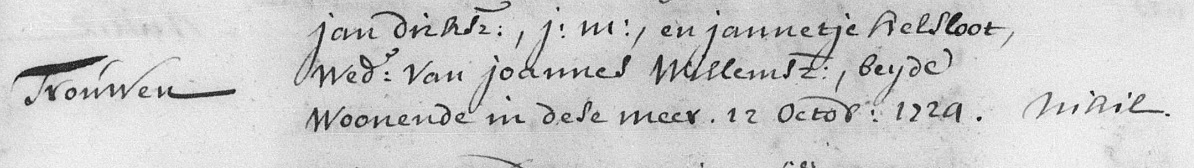 jan dirksz:, j: m:, en jannetje Helsloot,
Trouwen Wed:e van joannes Willemsz:, beyde
Woonende in dese meer. 12 Octobr: 1729. Nihil.